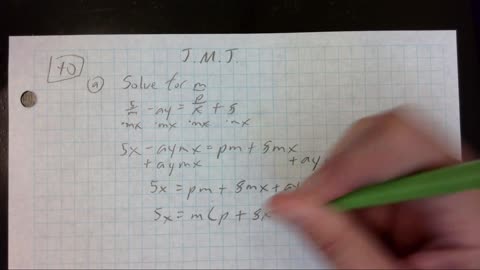 J.M.J.
70
a Solve for m
5/m - ay = p/x + 8
·mx ·mx ·mx ·mx
5x - aymx = pm + 8mx
+ aymx + ay
5x = pm + 8mx + ay
5x = m(p + 8x